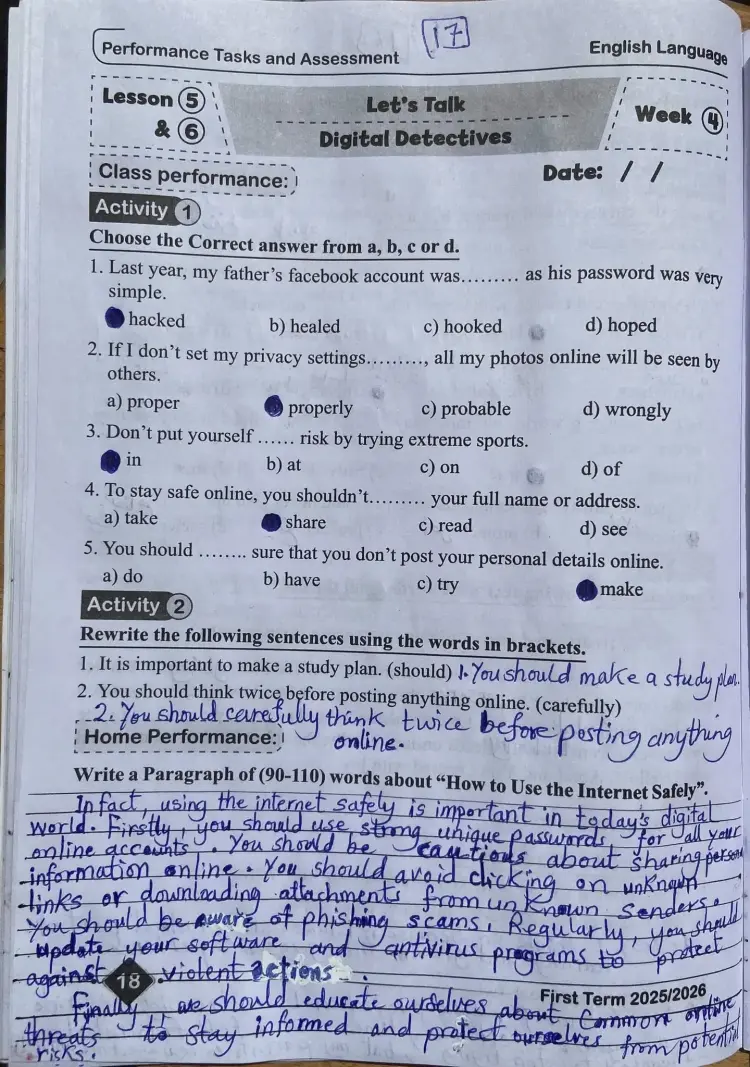 17
Performance Tasks and Assessment English Language
Lesson 5 & 6
Let's Talk
Digital Detectives
Week 4
Class performance: Date: / /
Activity 1
Choose the Correct answer from a, b, c or d.
1. Last year, my father's facebook account was......... as his password was very
simple.
hacked b) healed c) hooked d) hoped
2. If I don't set my privacy settings........., all my photos online will be seen by
others.
a) proper properly c) probable d) wrongly
3. Don't put yourself ...... risk by trying extreme sports.
in b) at c) on d) of
4. To stay safe online, you shouldn't......... your full name or address.
a) take share c) read d) see
5. You should ........ sure that you don't post your personal details online.
a) do b) have c) try make
Activity 2
Rewrite the following sentences using the words in brackets.
1. It is important to make a study plan. (should) 1. You should make a study plan.
2. You should think twice before posting anything online. (carefully)
2. You should carefully think twice before posting anything
Home Performance: online.
Write a Paragraph of (90-110) words about "How to Use the Internet Safely".
In fact, using the internet safely is important in today's digital
world. Firstly, you should use strong unique passwords, for all your
online accounts. You should be cautious about sharing person
information online. You should avoid clicking on unknown
links or downloading attachments from unknown senders.
You should be aware of phishing scams. Regularly, you should
update your software and antivirus programs to protect
against violent actions.
18
First Term 2025/2026
Finally we should educate ourselves about common online
threats to stay informed and protect ourselves from potential
risks.